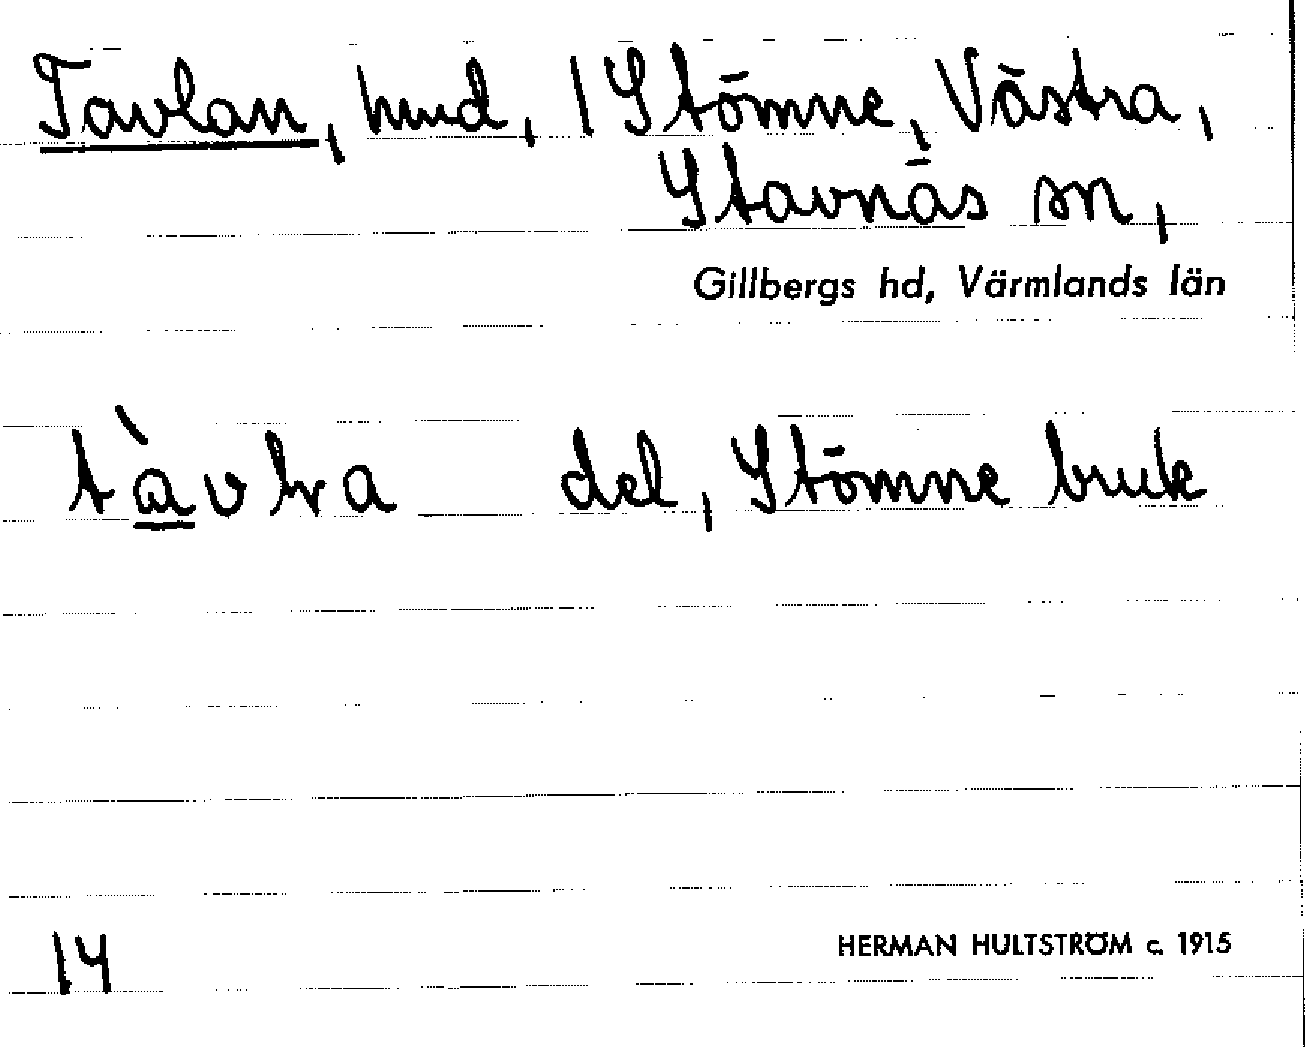 Tavlan, hmd, 1 Stömne, Västra,
Stavnäs sn,
Gillbergs hd, Värmlands län
del, Stömne bruk
14
HERMAN HULTSTRÖM c. 1915